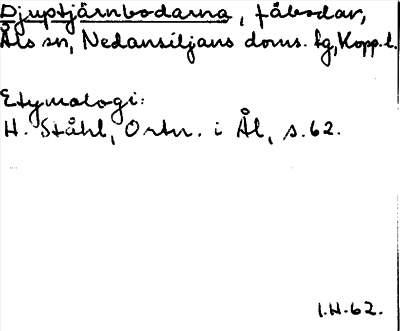 Djuptjärnbodarna, fäbodar,
Åls sn, Nedansiljans doms. tg, Kopp.l.
Etymologi:
H. Ståhl, Ortn. i Ål, s. 62.
I.H-62.